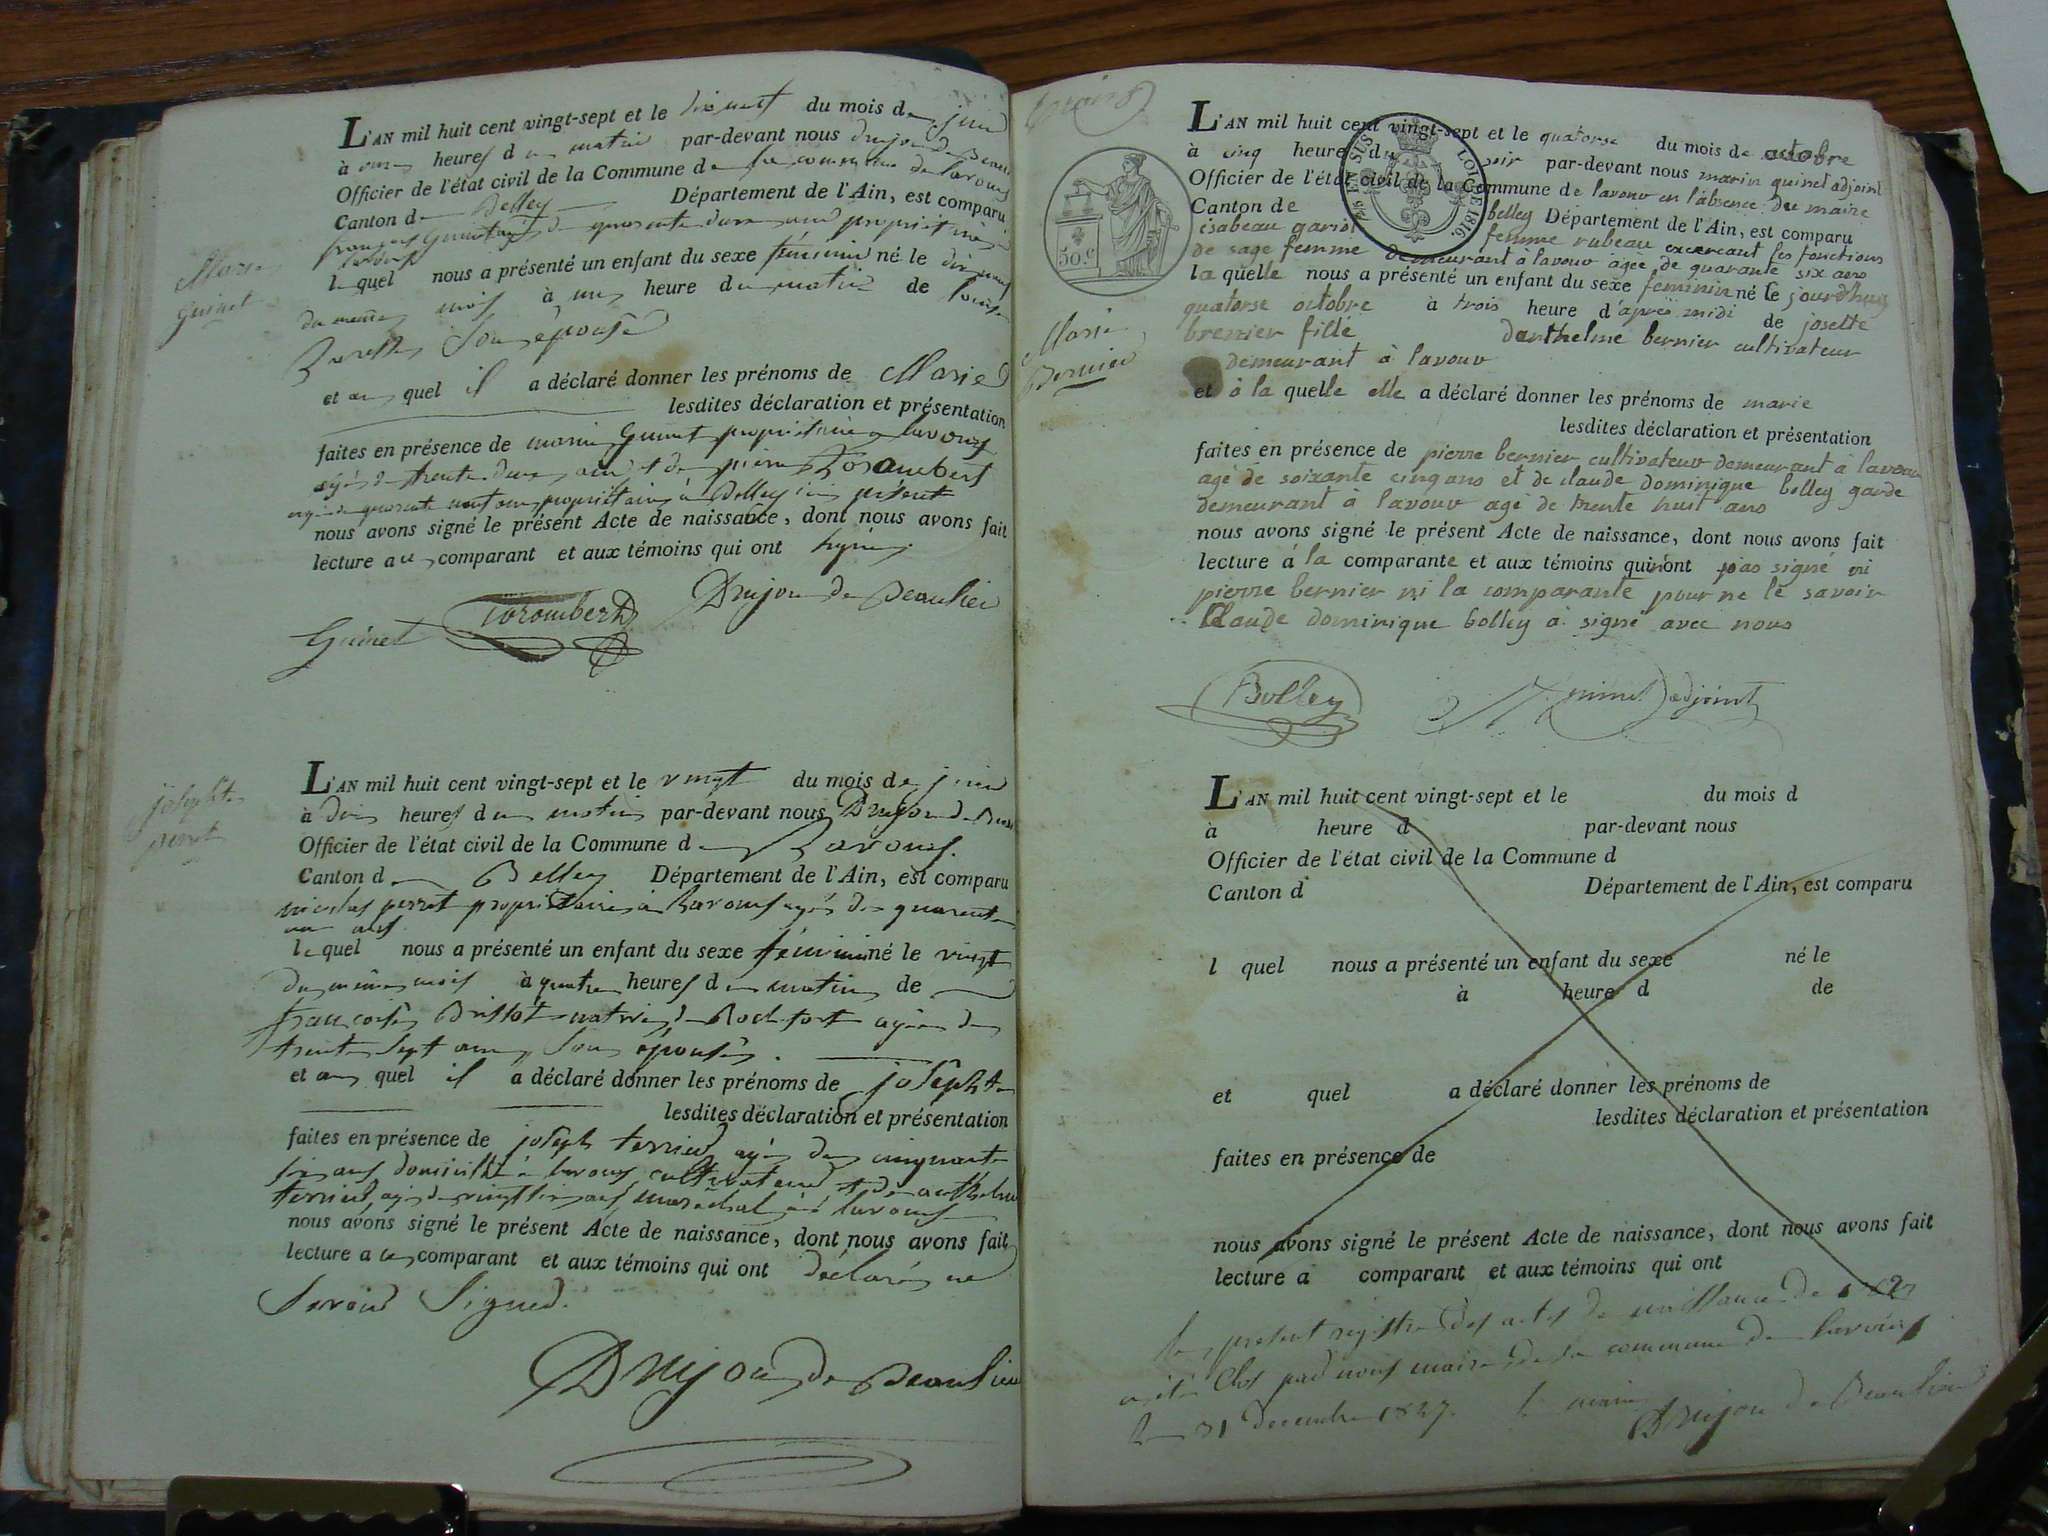 L'AN mil huit cent vingt-sept et le dixneuf du mois de juin
à onze heures du matin par-devant nous drujon de Beau
Officier de l'état civil de la Commune de la commune de lavours
Canton de Belley Département de l'Ain, est comparu
françois Guinet agé de quarante deux ans propriétaire à
lavours
Marie
Guinet
lequel nous a présenté un enfant du sexe féminin né le dix neuf
du même mois à une heure du matin de louise
son épouse
et au quel il a déclaré donner les prénoms de Marie
lesdites déclaration et présentation
faites en présence de marin Guinet propriétaire à lavours
agé de trente deux ans et de pierre Torombert
agé de quarante neuf ans propriétaire à Belley ici présent
nous avons signé le présent Acte de naissance, dont nous avons fait
lecture au comparant et aux témoins qui ont signé
Guinet Torombert Drujon de Beaulieu
L'AN mil huit cent vingt-sept et le vingt du mois de juin
à dix heures du matin par-devant nous Drujon de Beau
josephte
perret
Officier de l'état civil de la Commune de Lavours
Canton de Belley Département de l'Ain, est comparu
nicolas perret propriétaire à Lavours agé de quarante
un ans
lequel nous a présenté un enfant du sexe féminin né le vingt
du même mois à quatre heures du matin de
françoise Brissot native de Rochefort agée de
trente sept ans son épouse.
et au quel il a déclaré donner les prénoms de josephte
lesdites déclaration et présentation
faites en présence de joseph terrier agé de cinquante
six ans domicilié à lavours cultivateur et de anthelme
terrier, agé de vingt six ans maréchal à lavours
nous avons signé le présent Acte de naissance, dont nous avons fait
lecture au comparant et aux témoins qui ont déclaré ne
savoir signer.
Drujon de Beaulieu
L'AN mil huit cent vingt-sept et le quatorse du mois de octobre
à cinq heures du soir par-devant nous marin guinet adjoint
Officier de l'état civil de la Commune de lavour en l'absence du maire
Canton de belley Département de l'Ain, est comparu
esabeau gariot femme rubeau excercant les fonctions
de sage femme demeurant à lavour agée de quarante six ans
30.c
SUS
LOI DE 1816.
la quelle nous a présenté un enfant du sexe feminin né le jourdhuy
quatorse octobre à trois heure d'après midi de josette
brenier fille danthelme bernier cultivateur
demeurant à lavour
Marie
Bernier
et à la quelle elle a déclaré donner les prénoms de marie
lesdites déclaration et présentation
faites en présence de pierre bernier cultivateur demeurant à lavour
agé de soixante cinq ans et de claude dominique bolley garde
demeurant à lavour agé de trente huit ans
nous avons signé le présent Acte de naissance, dont nous avons fait
lecture à la comparante et aux témoins qui n'ont pas signé ni
pierre bernier ni la comparante pour ne le savoir
Claude dominique bolley a signé avec nous
Bolley M guinet adjoint
L'AN mil huit cent vingt-sept et le du mois d
à heure d par-devant nous
Officier de l'état civil de la Commune d
Canton d Département de l'Ain, est comparu
l quel nous a présenté un enfant du sexe né le
à heure d de
et quel a déclaré donner les prénoms de
lesdites déclaration et présentation
faites en présence de
nous avons signé le présent Acte de naissance, dont nous avons fait
lecture a comparant et aux témoins qui ont
le présent registre des actes de naissance de 1827
a été clos par nous maire de la commune de lavours
le 31 decembre 1827. le maire Drujon de Beaulieu